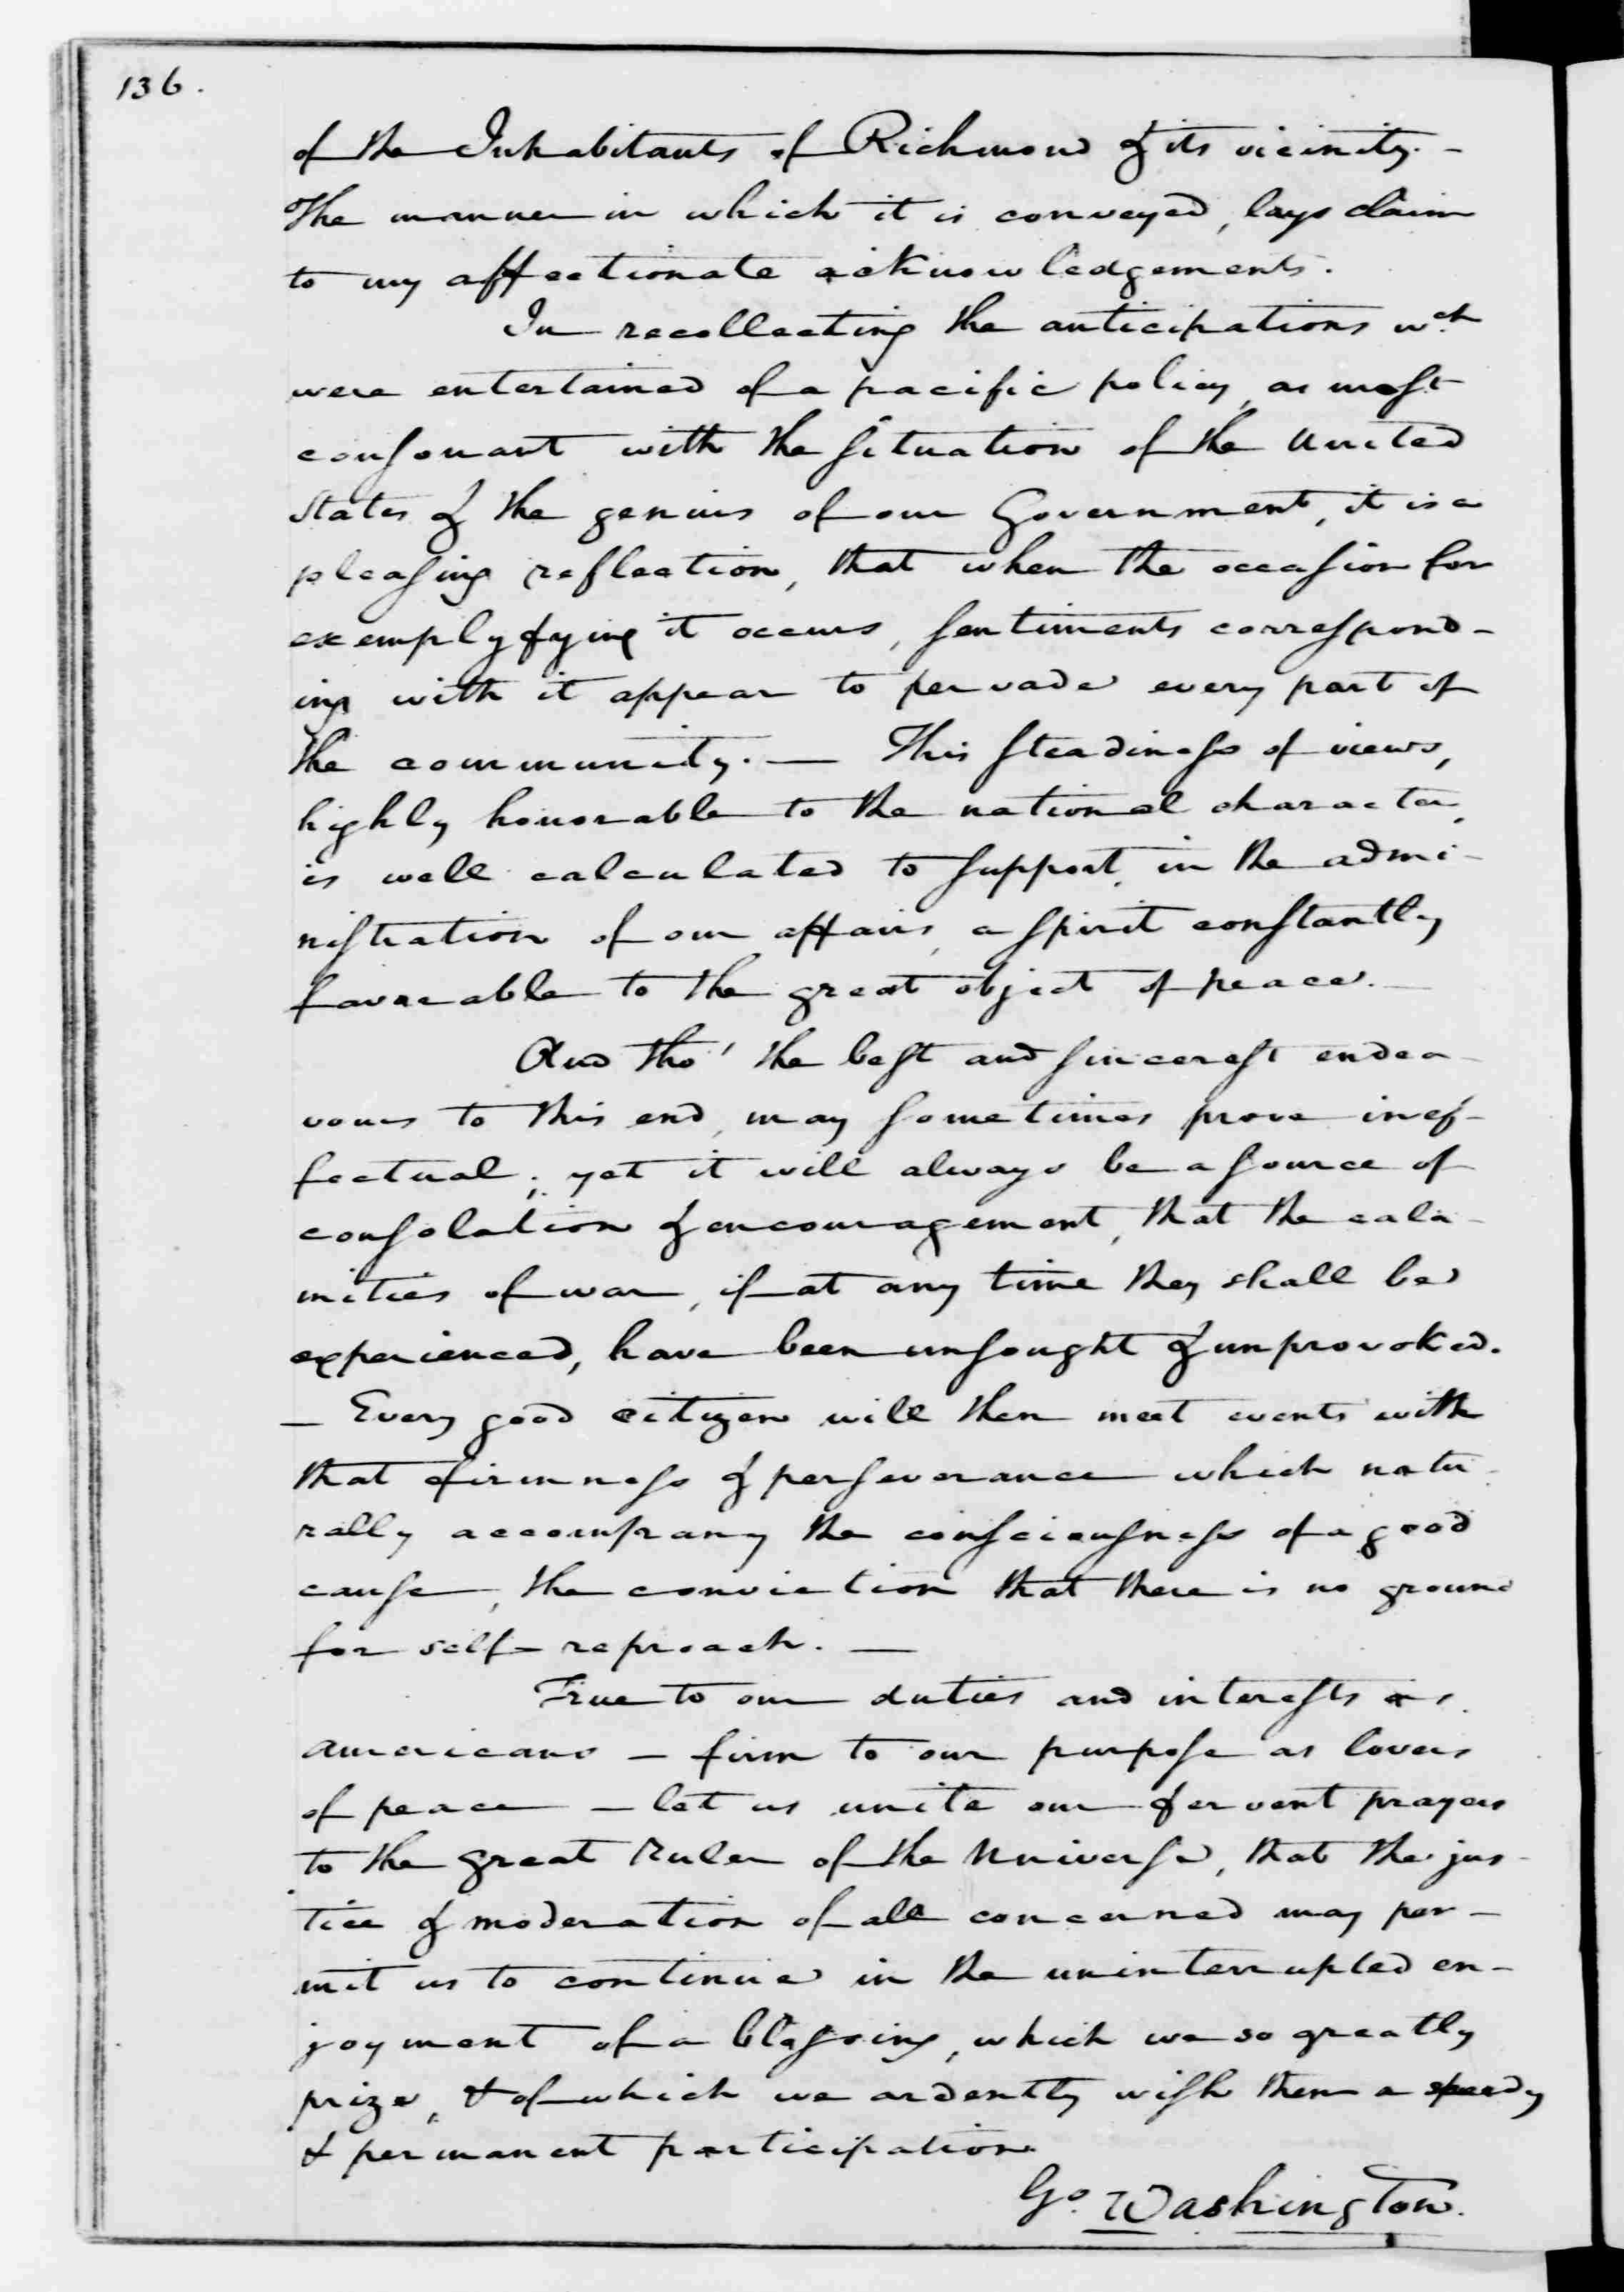 136.
of the Inhabitants of Richmond & its vicinity. -
The manner in which it is conveyed, lays claim
to my affectionate acknowledgements.
In recollecting the anticipations wch
were entertained of a pacific policy, as most
consonant with the situation of the United
States & the genius of our Government, it is a
pleasing reflection, that when the occasion for
exemplyfying it occurs, sentiments correspond-
ing with it appear to pervade every part of
the community. — This steadiness of views,
highly honorable to the national character,
is well calculated to support, in the admi-
nistration of our affairs, a spirit constantly
favorable to the great object of peace. —
And tho' the best and sincerest endea-
vours to this end, may sometimes prove inef-
fectual; yet it will always be a source of
consolation & encouragement, that the cala-
mities of war, if at any time they shall be
experienced, have been unsought & unprovoked.
— Every good citizen will then meet events with
that firmness & perseverance which natu-
rally accompany the consciousness of a good
cause, the conviction that there is no ground
for self-reproach. —
True to our duties and interests as
Americans — firm to our purpose as lovers
of peace — let us unite our fervent prayers
to the great Ruler of the Universe, that the jus-
tice & moderation of all concerned may per-
mit us to continue in the uninterrupted en-
joyment of a blessing, which we so greatly
prize, & of which we ardently wish them a speedy
& permanent participation.
Go. Washington.